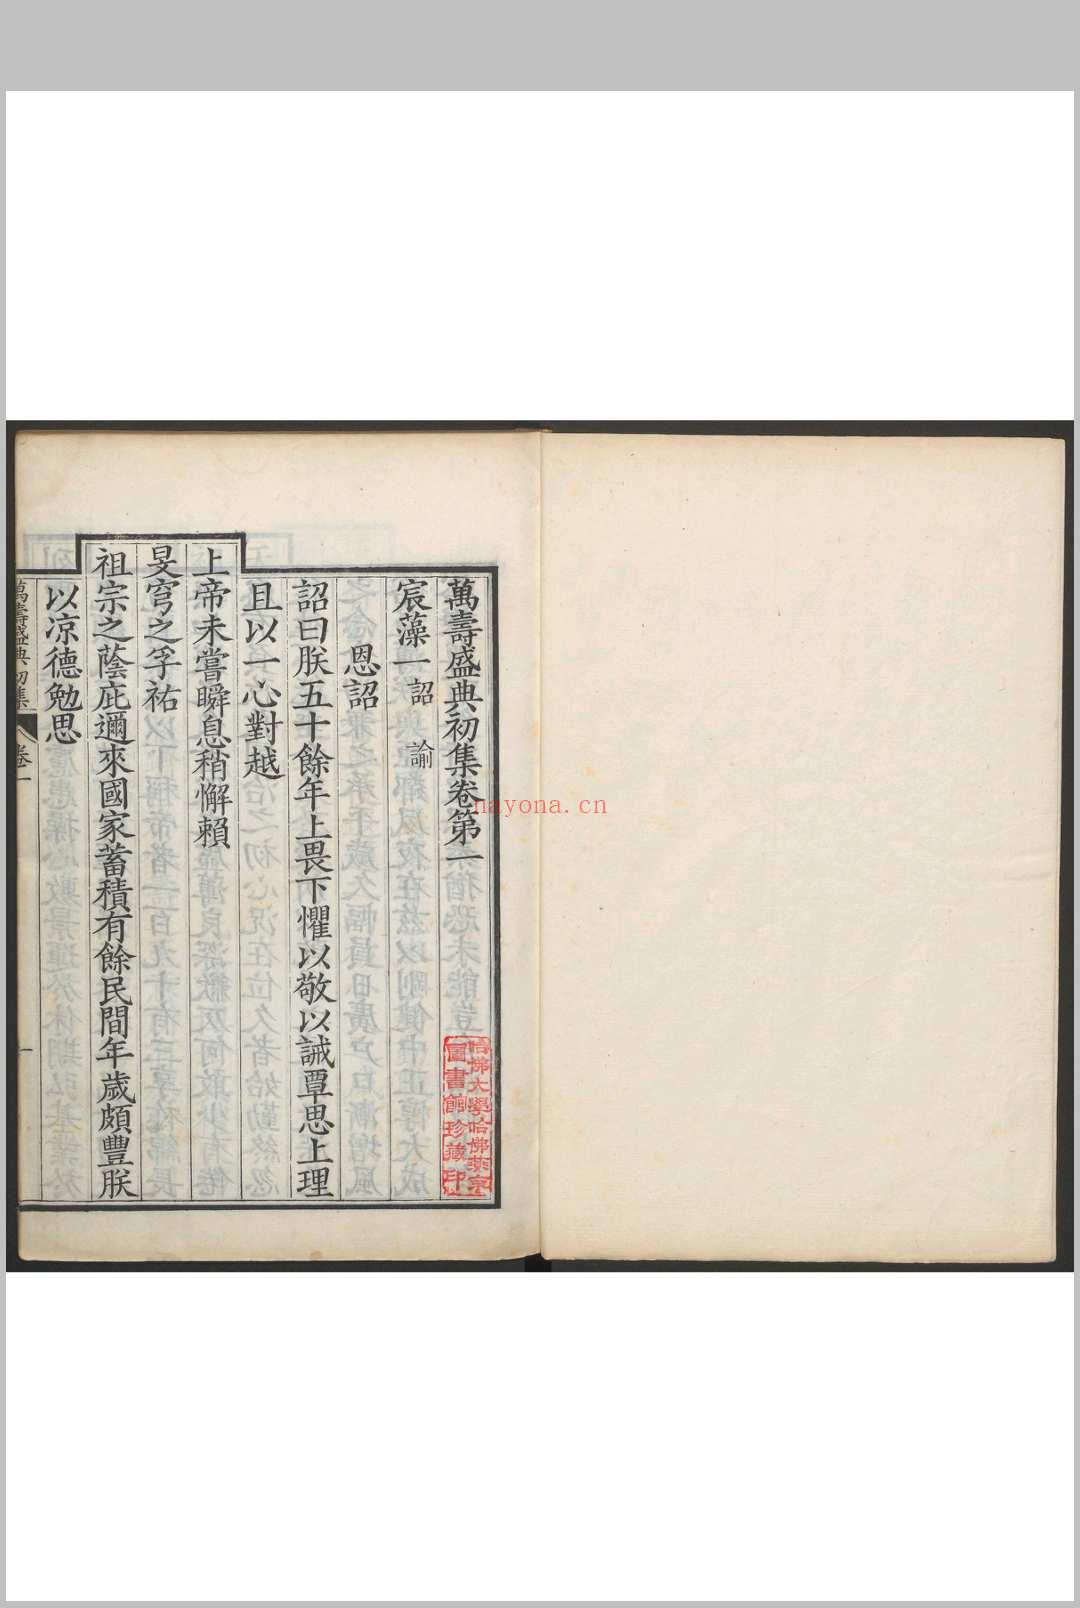 萬壽盛典初集卷第一
宸藻一 詔 諭
恩詔
詔曰朕五十餘年上畏下懼以敬以誠覃思上理
且以一心對越
上帝未嘗瞬息稍懈賴
旻穹之孚祐
祖宗之蔭庇邇來國家蓄積有餘民間年歲頗豐朕
以凉德勉思
萬壽盛典初集 卷一 一
哈佛大學哈佛燕京
圖書館珍藏印
nayona.cn